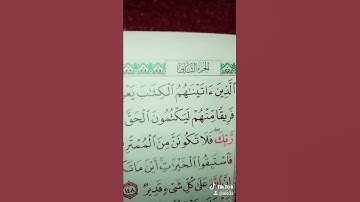 الجزء الثاني
ٱلَّذِينَ ءَاتَيْنَٰهُمُ ٱلْكِتَٰبَ
فَرِيقًا مِّنْهُمْ لَيَكْتُمُونَ ٱلْحَقَّ
رَّبِّكَ فَلَا تَكُونَنَّ مِنَ
فَٱسْتَبِقُوا۟ ٱلْخَيْرَٰتِ أَيْنَ مَا
عَلَىٰ كُلِّ شَىْءٍ قَدِيرٌ ١٤٨
TikTok